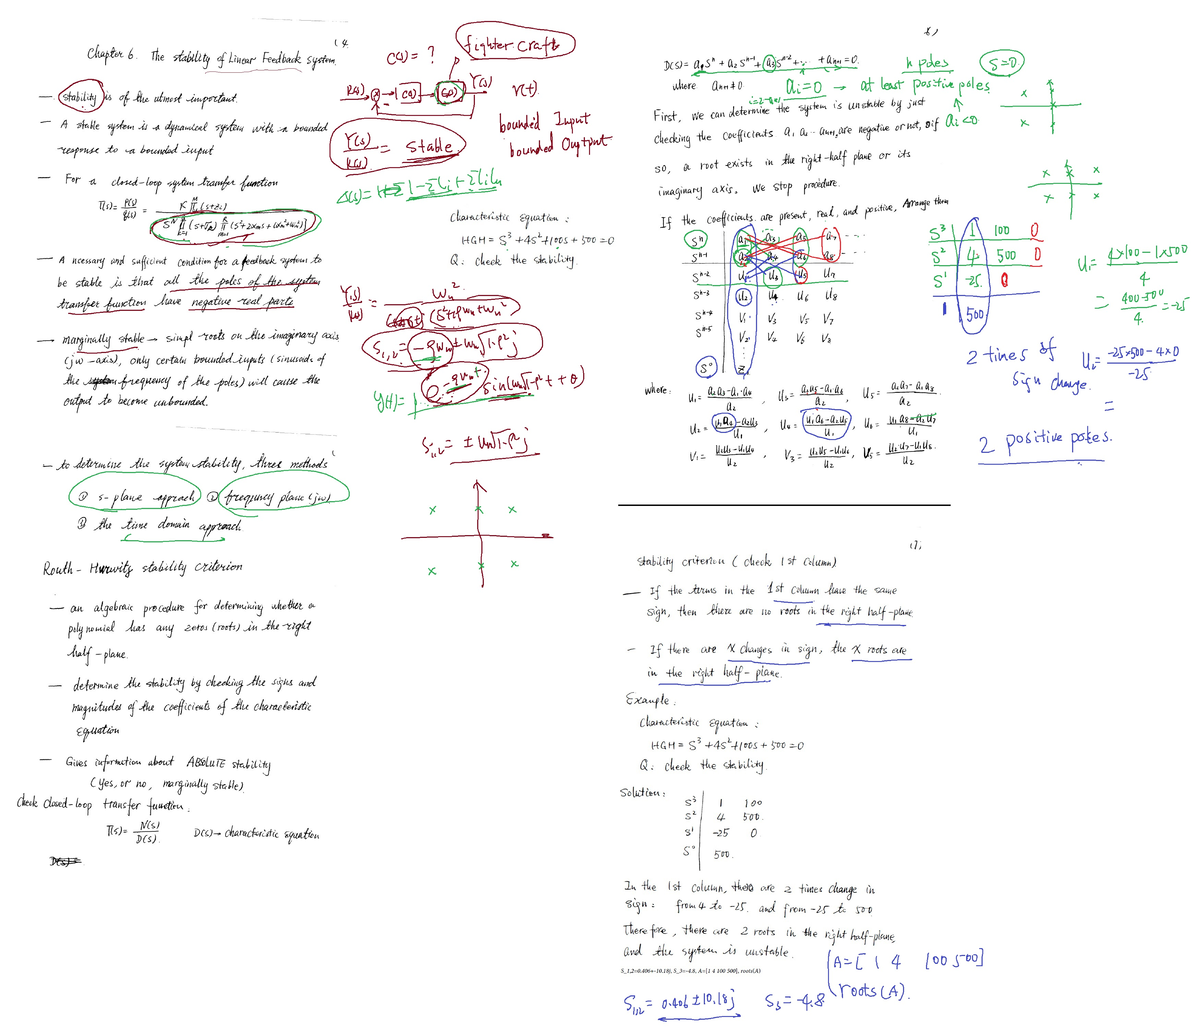 14.
Chapter 6. The stability of Linear Feedback system
— stability is of the utmost important.
— A stable system is a dynamical system with a bounded
response to a bounded input
— For a closed-loop system transfer function
T(s) = P(s)/q(s) =
— A ncessary and sufficient condition for a feedback system to
be stable is that all the poles of the system
transfer function have negative real parts
— marginally stable → simpl roots on the imaginary axis
(jw-axis), only certain bounded inputs (sinusoids of
the frequency of the poles) will cause the
output to become unbounded.
— to determine the system stability, three methods
① s-plane approach ② frequency plane (jw)
③ the time domain approach
Routh-Hurwitz stability criterion
— an algebraic procedure for determining whether a
polynomial has any zeros (roots) in the right
half-plane.
— determine the stability by checking the signs and
magnitudes of the coefficients of the characteristic
equation
— Gives information about ABSOLUTE stability
(Yes, or no, marginally stable)
Check closed-loop transfer function.
T(s) = N(s)/D(s) D(s) → characteristic equation
C(s) = ?
fighter craft
R(s) C(s) G(s) Y(s)
r(t)
Y(s)/R(s) = stable
bounded Input
bounded Ouptput
Characteristic equation :
H G H = S³ + 4S² + 100S + 500 = 0
Q: check the stability.
S₁,₂ = ± wn√1-ρ² j
D(s) = a₁Sⁿ + a₂Sⁿ⁻¹ + a₃Sⁿ⁻² + ··· + aₙ₊₁ = 0.
n poles
S=0
where aₙ₊₁ ≠ 0
ai = 0 → at least positive poles
First, we can determine the system is unstable by just
checking the coefficients a₁ a₂ ··· aₙ₊₁, are negative or not, 0 if
ai < 0
so, a root exists in the right-half plane or its
imaginary axis. We stop procedure.
If the coefficients are present, real, and positive, Arrange them
Sⁿ a₁ a₃ a₅ a₇
Sⁿ⁻¹ a₂ a₄ a₆ a₈
Sⁿ⁻² U₁ U₃ U₅ U₇
Sⁿ⁻³ U₂ U₄ U₆ U₈
Sⁿ⁻⁴ V₁ V₃ V₅ V₇
Sⁿ⁻⁵ V₂ V₄ V₆ V₈
S⁰
where:
S³ 1 100 0
S² 4 500 0
S¹ -25 0
500
U₁ = (4×100 - 1×500)/4
= (400-500)/4 = -25
2 times of
sign change.
U₂ = (-25×500 - 4×0)/-25
=
2 positive poles.
17,
Stability criterion ( check 1st Column)
— If the terms in the 1st column have the same
sign, then there are no roots in the right half-plane
— If there are X changes in sign, the X roots are
in the right half-plane.
Example.
Characteristic equation :
H G H = S³ + 4S² + 100S + 500 = 0
Q: check the stability.
Solution:
S³ 1 100
S² 4 500.
S¹ -25 0.
S⁰ 500.
In the 1st column, there are 2 times change in
sign: from 4 to -25. and from -25 to 500
Therefore, there are 2 roots in the right half-plane
and the system is unstable.
S_1,2=0.406+-10.18j, S_3=-4.8, A=[1 4 100 500], roots(A)
A=[ 1 4 100 500]
roots(A).
S₁,₂ = 0.406 ± 10.18j S₃ = -4.8